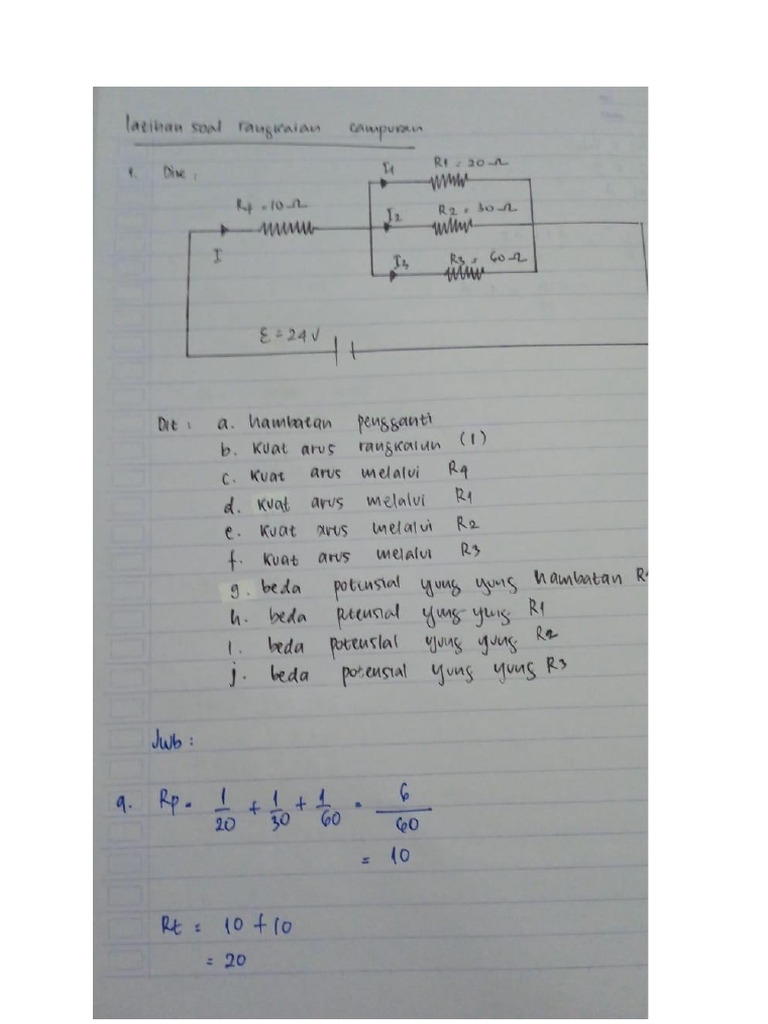 latihan soal rangkaian campuran
1. Dik :
R4 = 10 Ω
I
I1
R1 = 20 Ω
I2
R2 = 30 Ω
I3
R3 = 60 Ω
ε = 24 V
Dit : a. hambatan pengganti
b. kuat arus rangkaian (I)
c. kuat arus melalui R4
d. kuat arus melalui R1
e. kuat arus melalui R2
f. kuat arus melalui R3
g. beda potensial yung yung hambatan R
h. beda ptensial yung yung R1
i. beda potensial yung yung R2
j. beda potensial yung yung R3
Jwb :
a. Rp = 1/20 + 1/30 + 1/60 = 6/60
= 10
Rt = 10 + 10
= 20